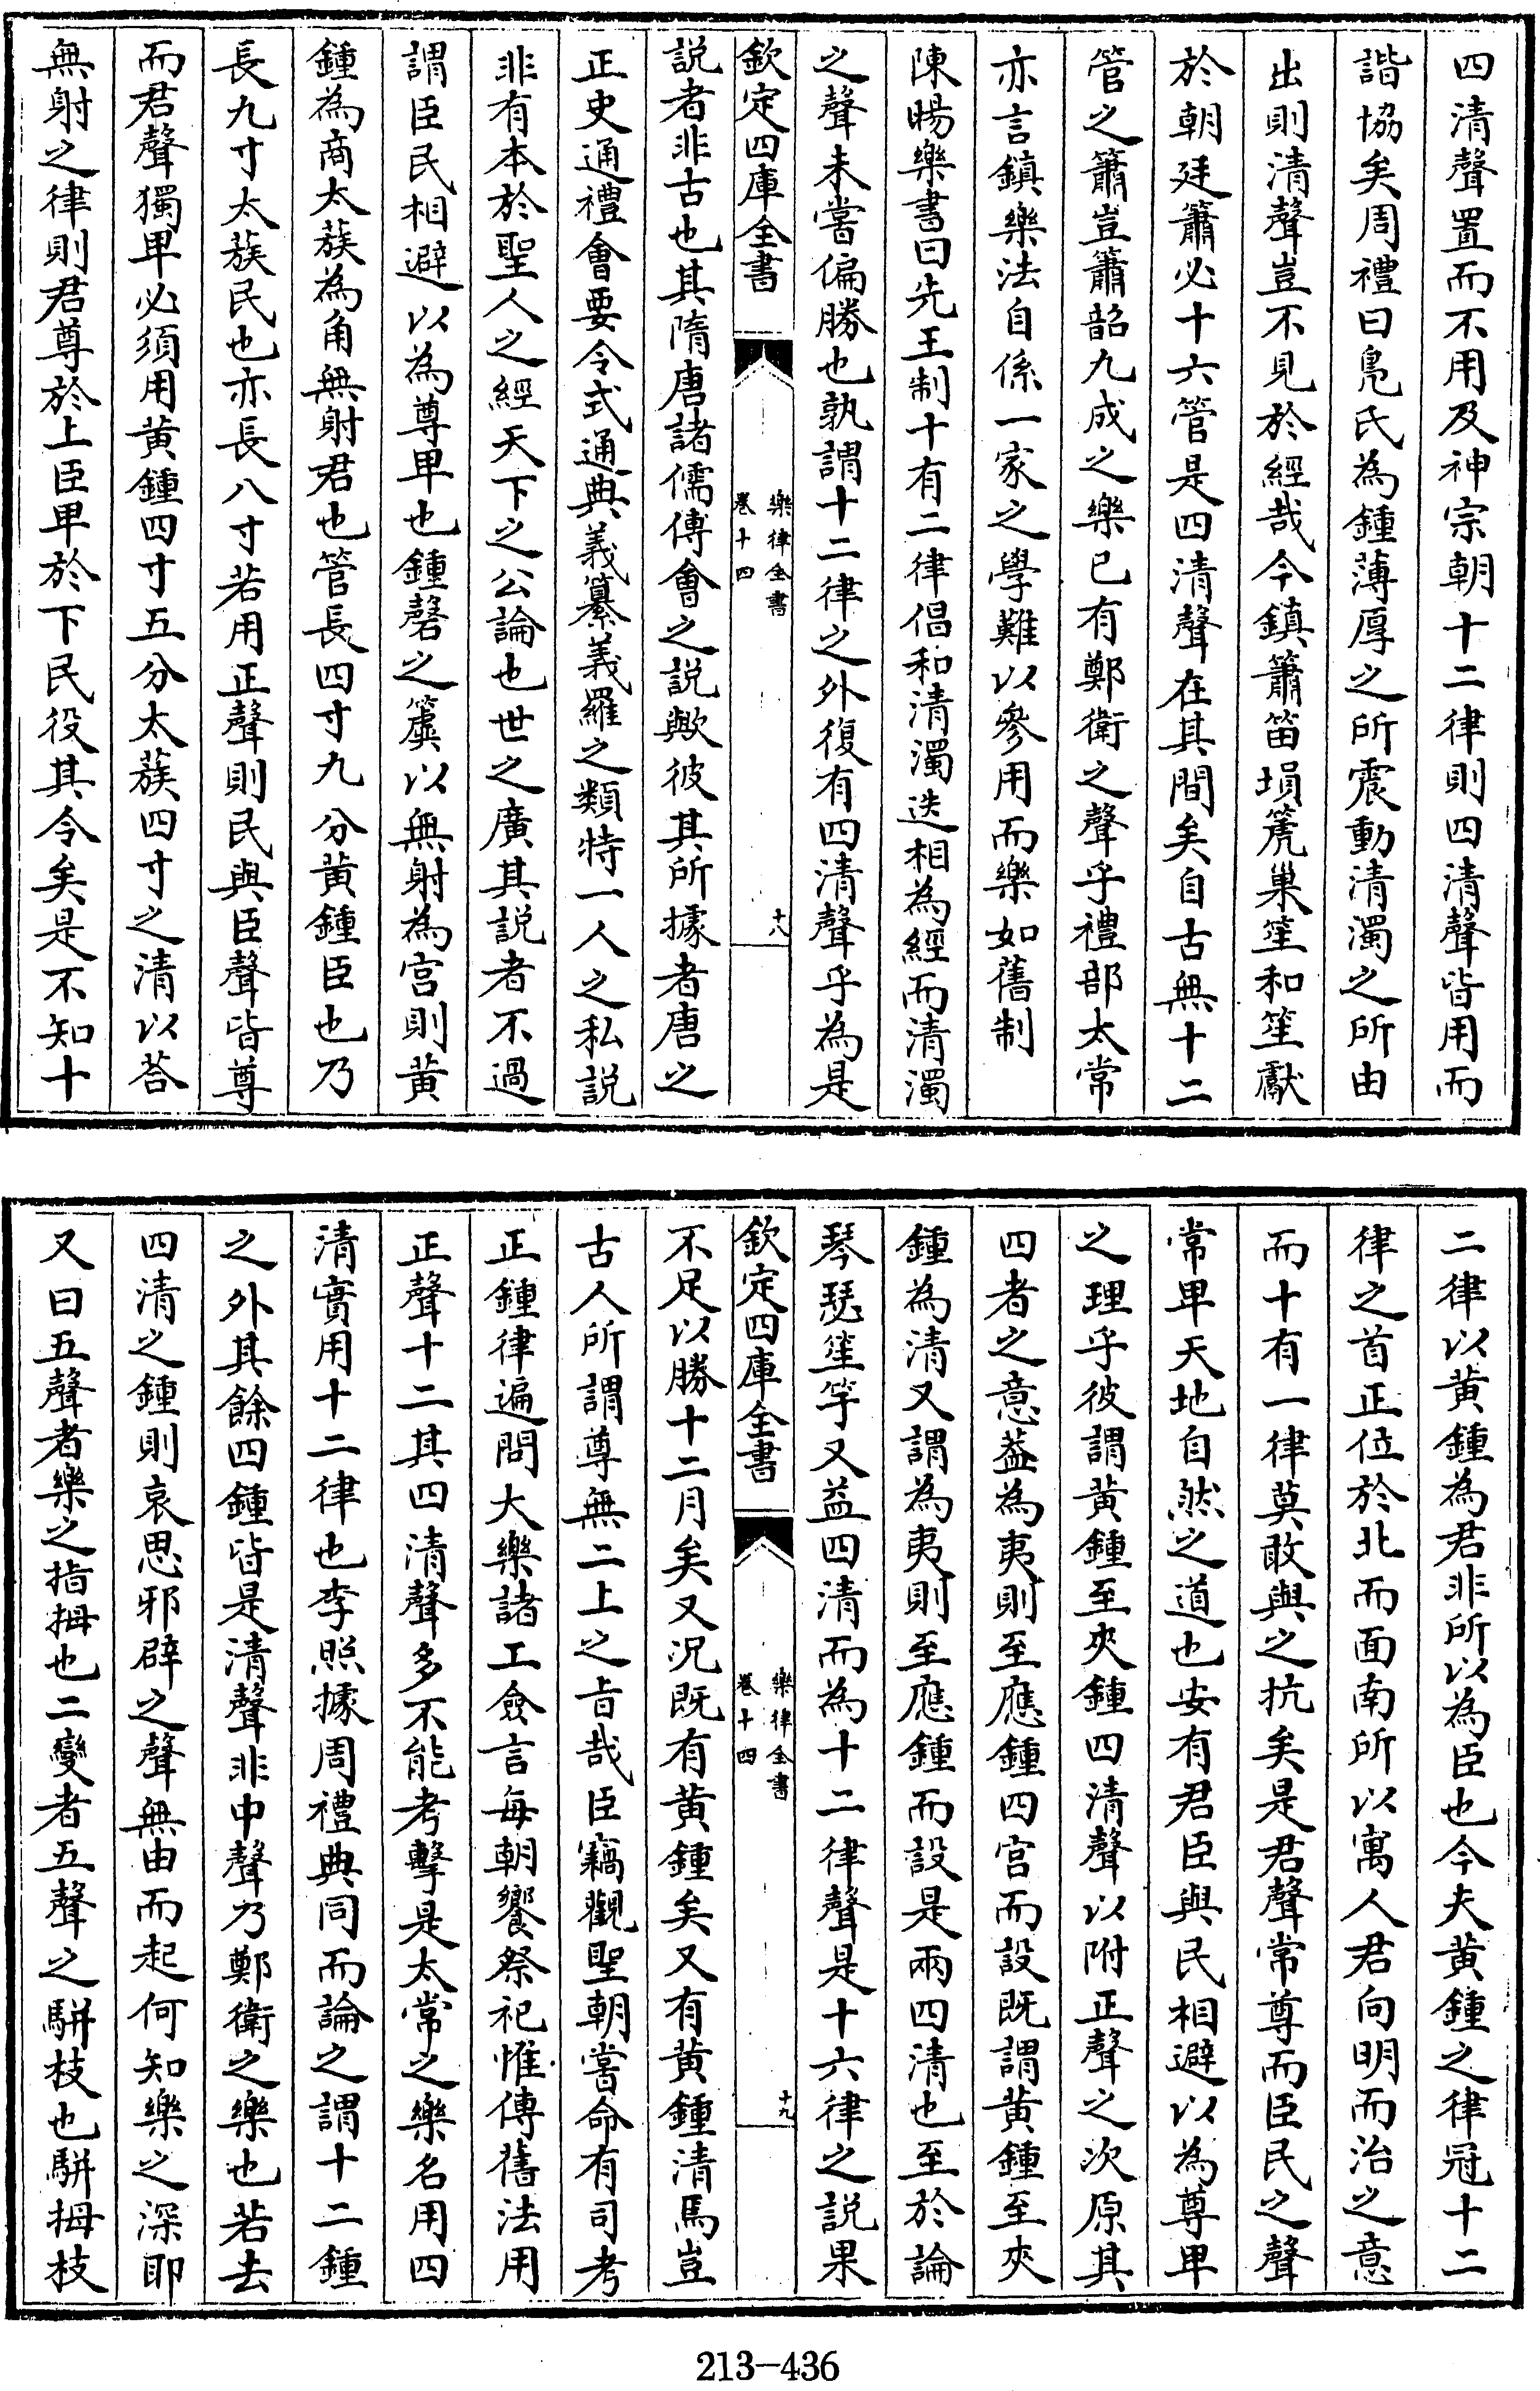 四清聲置而不用及神宗朝十二律則四清聲皆用而
諧協矣周禮曰鳬氏為鍾薄厚之所震動清濁之所由
出則清聲豈不見於經哉今鎮簫笛塤箎巢笙和笙獻
於朝廷簫必十六管是四清聲在其間矣自古無十二
管之簫豈簫韶九成之樂已有鄭衛之聲乎禮部太常
亦言鎮樂法自係一家之學難以參用而樂如舊制
陳暘樂書曰先王制十有二律倡和清濁迭相為經而清濁
之聲未嘗偏勝也孰謂十二律之外復有四清聲乎為是
欽定四庫全書
樂律全書
卷十四
十八
説者非古也其隋唐諸儒傅會之説歟彼其所據者唐之
正史通禮會要令式通典義纂義羅之類特一人之私説
非有本於聖人之經天下之公論也世之廣其説者不過
謂臣民相避以為尊卑也鍾磬之簴以無射為宫則黄
鍾為商太蔟為角無射君也管長四寸九分黄鍾臣也乃
長九寸太蔟民也亦長八寸若用正聲則民與臣聲皆尊
而君聲獨卑必須用黄鍾四寸五分太蔟四寸之清以荅
無射之律則君尊於上臣卑於下民役其令矣是不知十
二律以黄鍾為君非所以為臣也今夫黄鍾之律冠十二
律之首正位於北而面南所以寓人君向明而治之意
而十有一律莫敢與之抗矣是君聲常尊而臣民之聲
常卑天地自然之道也安有君臣與民相避以為尊卑
之理乎彼謂黄鍾至夾鍾四清聲以附正聲之次原其
四者之意葢為夷則至應鍾四宫而設既謂黄鍾至夾
鍾為清又謂為夷則至應鍾而設是兩四清也至於論
琴瑟笙竽又益四清而為十二律聲是十六律之説果
欽定四庫全書
樂律全書
卷十四
十九
不足以勝十二月矣又况既有黄鍾矣又有黄鍾清馬豈
古人所謂尊無二上之旨哉臣竊觀聖朝嘗命有司考
正鍾律遍問大樂諸工僉言每朝饗祭祀惟傳舊法用
正聲十二其四清聲多不能考擊是太常之樂名用四
清實用十二律也李照據周禮典同而論之謂十二鍾
之外其餘四鍾皆是清聲非中聲乃鄭衛之樂也若去
四清之鍾則哀思邪辟之聲無由而起何知樂之深耶
又曰五聲者樂之指拇也二變者五聲之駢枝也駢拇枝
213-436